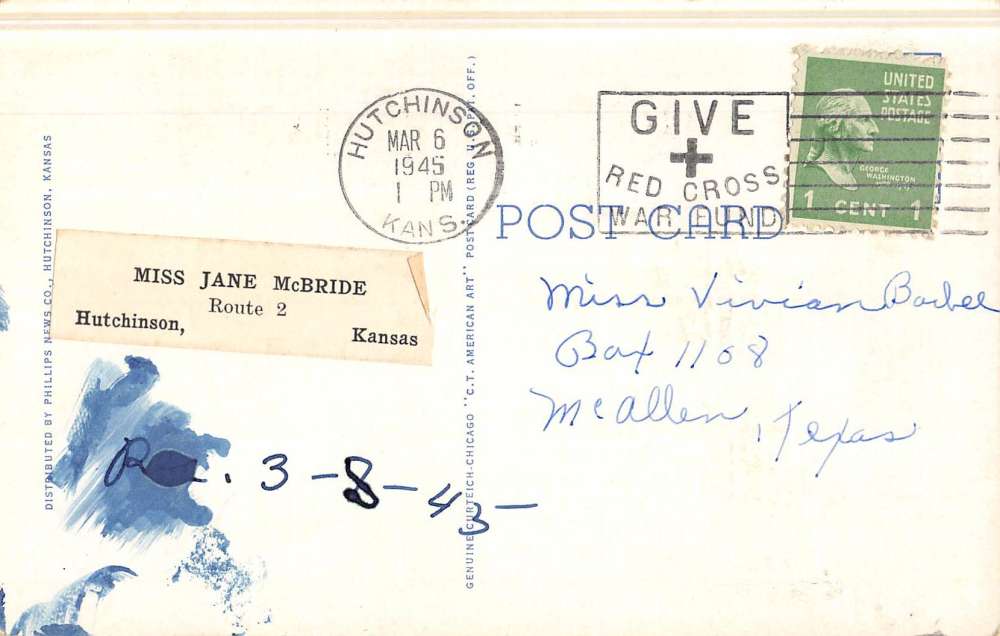 DISTRIBUTED BY PHILLIPS NEWS CO., HUTCHINSON, KANSAS
MISS JANE McBRIDE
Route 2
Hutchinson, Kansas
3-8-45-
GENUINE CURTEICH-CHICAGO "C.T. AMERICAN ART" POST CARD (REG. U.S. PAT. OFF.)
HUTCHINSON
MAR 6
1945
1 PM
KANS.
GIVE
RED CROSS
WAR FUND
UNITED
STATES
POSTAGE
GEORGE
WASHINGTON
1 CENT 1
POST CARD
Miss Vivian
Box 1168
McAllen, Texas